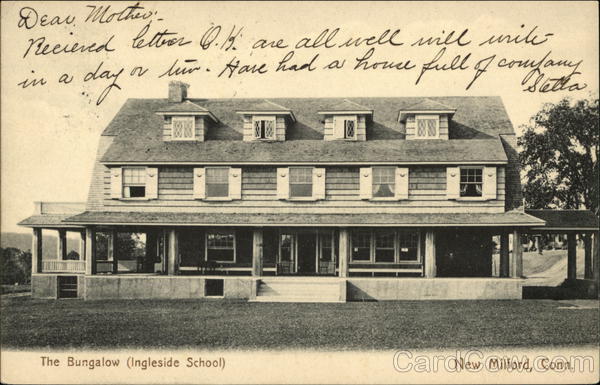 Dear Mother:-
Reciered letter O.K. are all well will write
in a day or two. Have had a house full of company
Stella
The Bungalow (Ingleside School)
New Milford, Conn.
CardCow.com